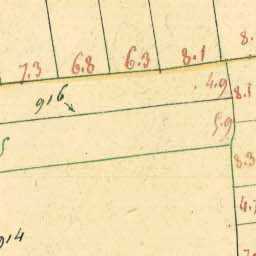 7.3 6.8 6.3 8.1 8.
9,6 4.9 8.1
5.9
8.3
4.7
9,4